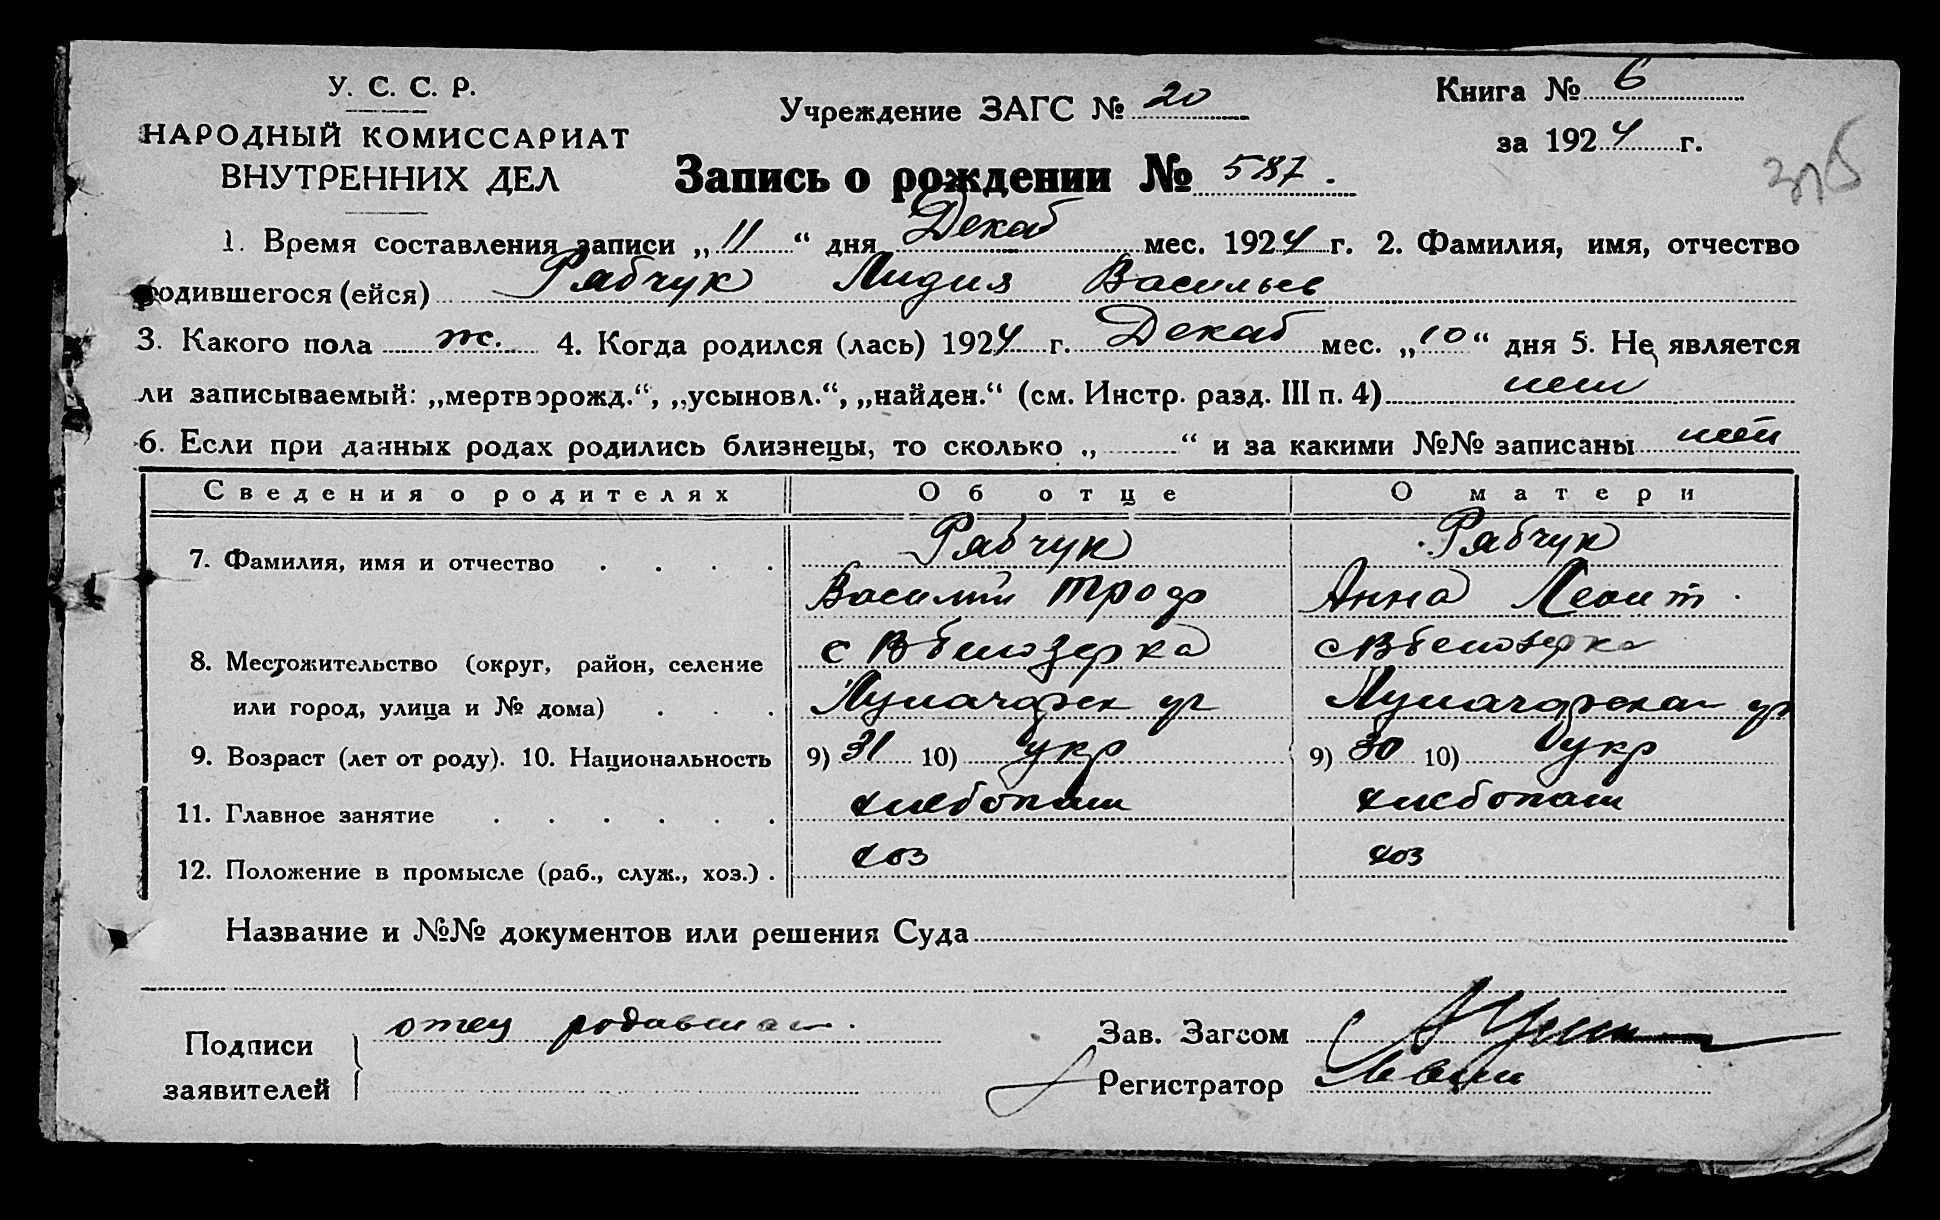 У. С. С. Р.
НАРОДНЫЙ КОМИССАРИАТ
ВНУТРЕННИХ ДЕЛ
Учреждение ЗАГС № 20
Книга № 6
за 1924 г.
Запись о рождении № 587.
1. Время составления записи „11“ дня Декаб мес. 1924 г. 2. Фамилия, имя, отчество
родившегося (ейся) Рябчук Лидия Васильев
3. Какого пола ж. 4. Когда родился (лась) 1924 г. Декаб мес. „10“ дня 5. Не является
ли записываемый: „мертворожд.“, „усыновл.“, „найден.“ (см. Инстр. разд. III п. 4) нет
6. Если при данных родах родились близнецы, то сколько „ “ и за какими №№ записаны нет
Сведения о родителях Об отце О матери
7. Фамилия, имя и отчество Рябчук Рябчук
Василий Троф Анна Леонт.
8. Местожительство (округ, район, селение с В белозерка с В белозерка
или город, улица и № дома)
9. Возраст (лет от роду). 10. Национальность 9) 31 10) укр 9) 30 10) укр
11. Главное занятие хлебопаш хлебопаш
12. Положение в промысле (раб., служ., хоз.) хоз хоз
Название и №№ документов или решения Суда
Подписи
заявителей
отец
Зав. Загсом
Регистратор